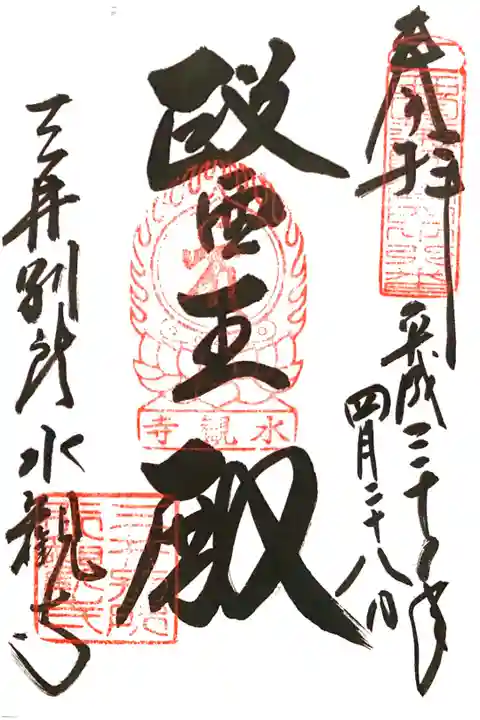 奉拝
平成三十年
四月二十八日
醫王殿
水觀寺
三井別所 水觀寺